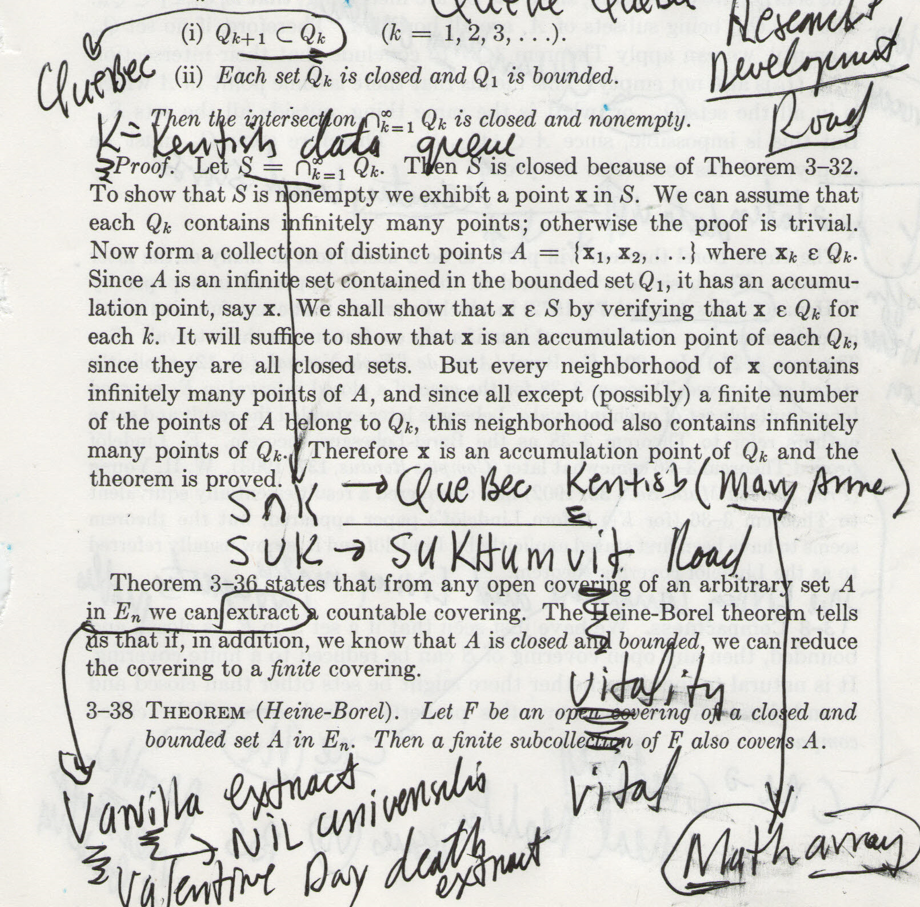 Queue Quebec
Research
Development
Road
(i) Qk+1 ⊂ Qk (k = 1, 2, 3, . . .).
Quebec
(ii) Each set Qk is closed and Q1 is bounded.
Then the intersection ⋂∞k=1 Qk is closed and nonempty.
K = Kentish data queue
Proof. Let S = ⋂∞k=1 Qk. Then S is closed because of Theorem 3–32.
To show that S is nonempty we exhibit a point x in S. We can assume that
each Qk contains infinitely many points; otherwise the proof is trivial.
Now form a collection of distinct points A = {x1, x2, . . .} where xk ε Qk.
Since A is an infinite set contained in the bounded set Q1, it has an accumu-
lation point, say x. We shall show that x ε S by verifying that x ε Qk for
each k. It will suffice to show that x is an accumulation point of each Qk,
since they are all closed sets. But every neighborhood of x contains
infinitely many points of A, and since all except (possibly) a finite number
of the points of A belong to Qk, this neighborhood also contains infinitely
many points of Qk. Therefore x is an accumulation point of Qk and the
theorem is proved.
SQK → Quebec Kentish (Mary Anne)
SUK → SUKHumvit Road
Theorem 3–36 states that from any open covering of an arbitrary set A
in En we can extract a countable covering. The Heine-Borel theorem tells
us that if, in addition, we know that A is closed and bounded, we can reduce
the covering to a finite covering.
vitality
3–38 THEOREM (Heine-Borel). Let F be an open covering of a closed and
bounded set A in En. Then a finite subcollection of F also covers A.
vital
Vanilla extract
NiL universilis
Math array
Valentine Day death extract